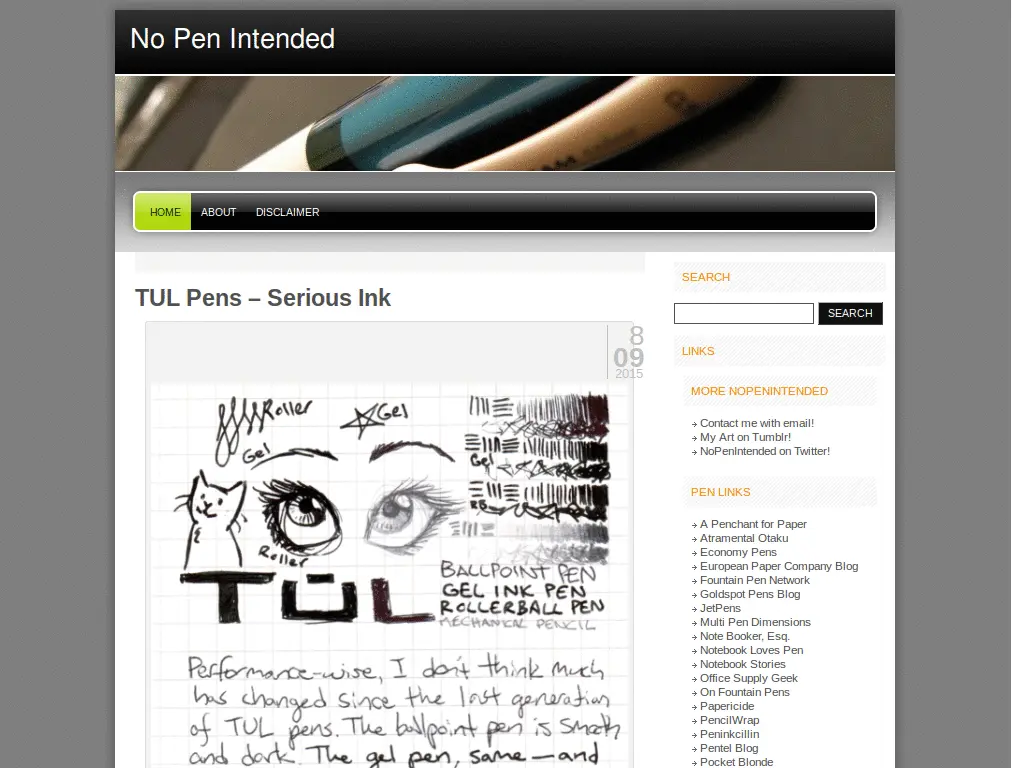 No Pen Intended
HOME ABOUT DISCLAIMER
TUL Pens – Serious Ink
8
09
2015
Roller
Gel
Gel
Gel
RB
Roller
TÜL
BALLPOINT PEN
GEL INK PEN
ROLLERBALL PEN
MECHANICAL PENCIL
Performance-wise, I don't think much
has changed since the last generation
of TUL pens. The ballpoint pen is smooth
and dark. The gel pen, same — and
SEARCH
SEARCH
LINKS
MORE NOPENINTENDED
Contact me with email!
My Art on Tumblr!
NoPenIntended on Twitter!
PEN LINKS
A Penchant for Paper
Atramental Otaku
Economy Pens
European Paper Company Blog
Fountain Pen Network
Goldspot Pens Blog
JetPens
Multi Pen Dimensions
Note Booker, Esq.
Notebook Loves Pen
Notebook Stories
Office Supply Geek
On Fountain Pens
Papericide
PencilWrap
Peninkcillin
Pentel Blog
Pocket Blonde